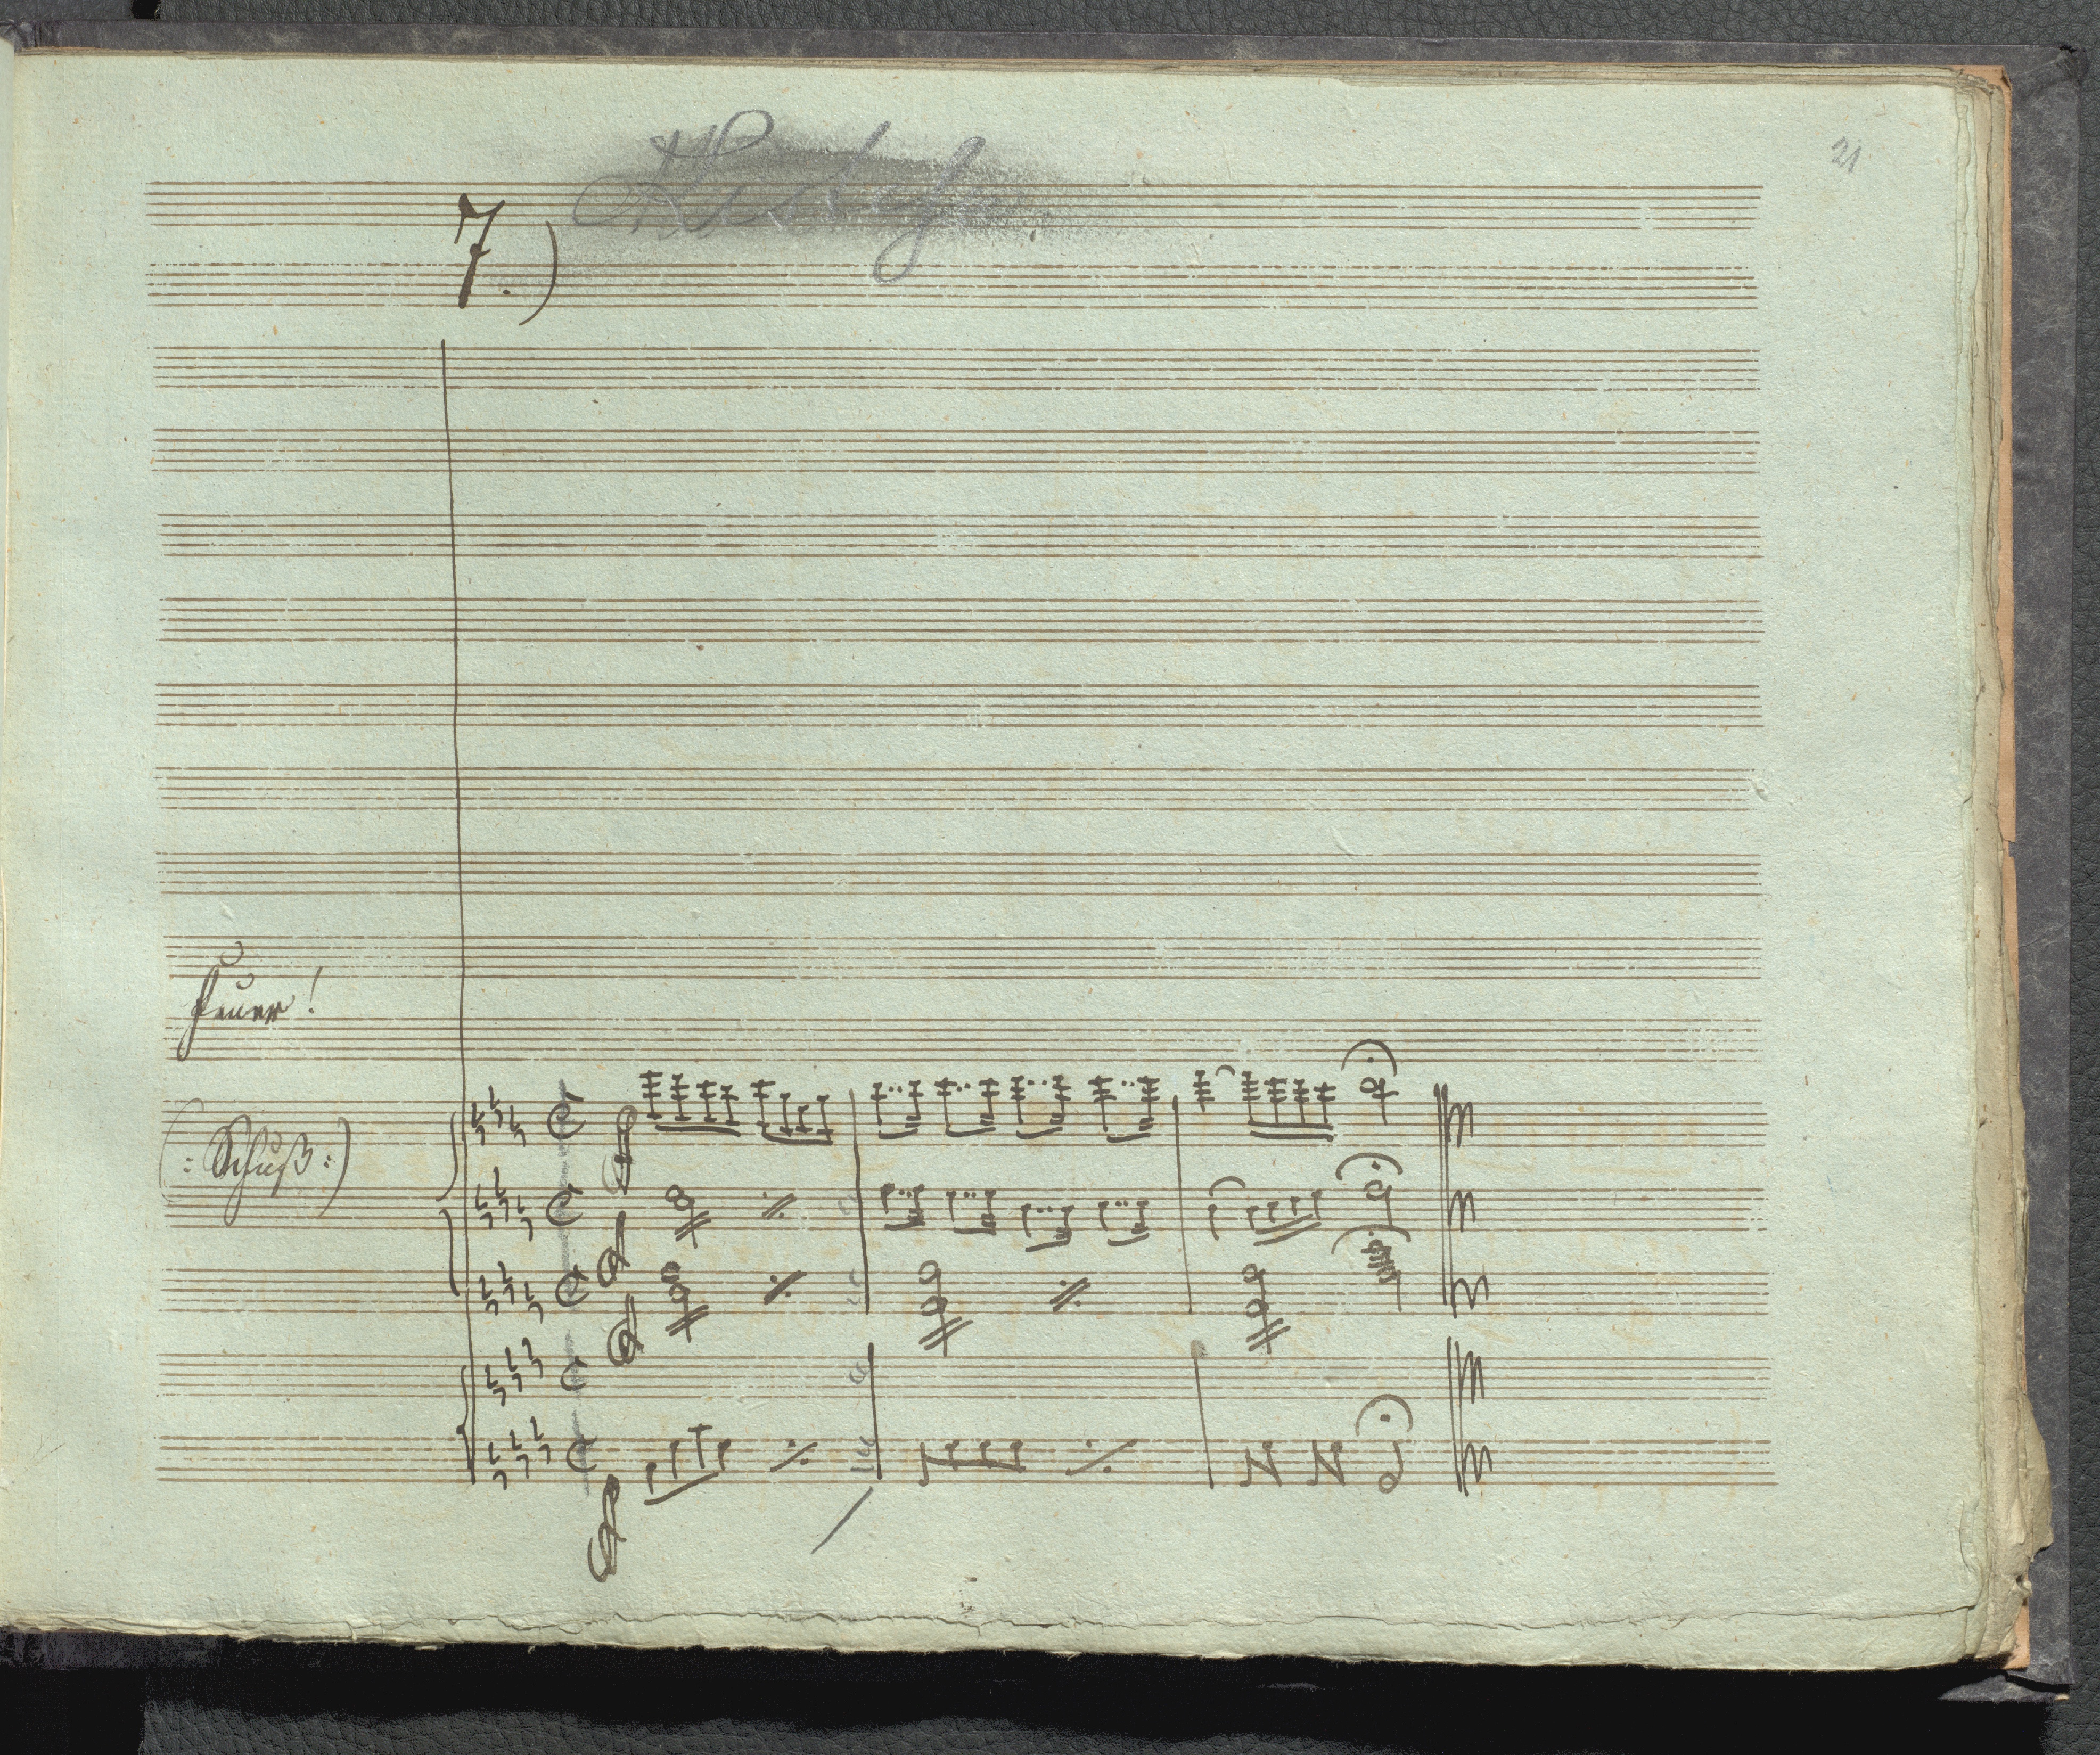 21
7.)
Feuer!
(: Schuß :)